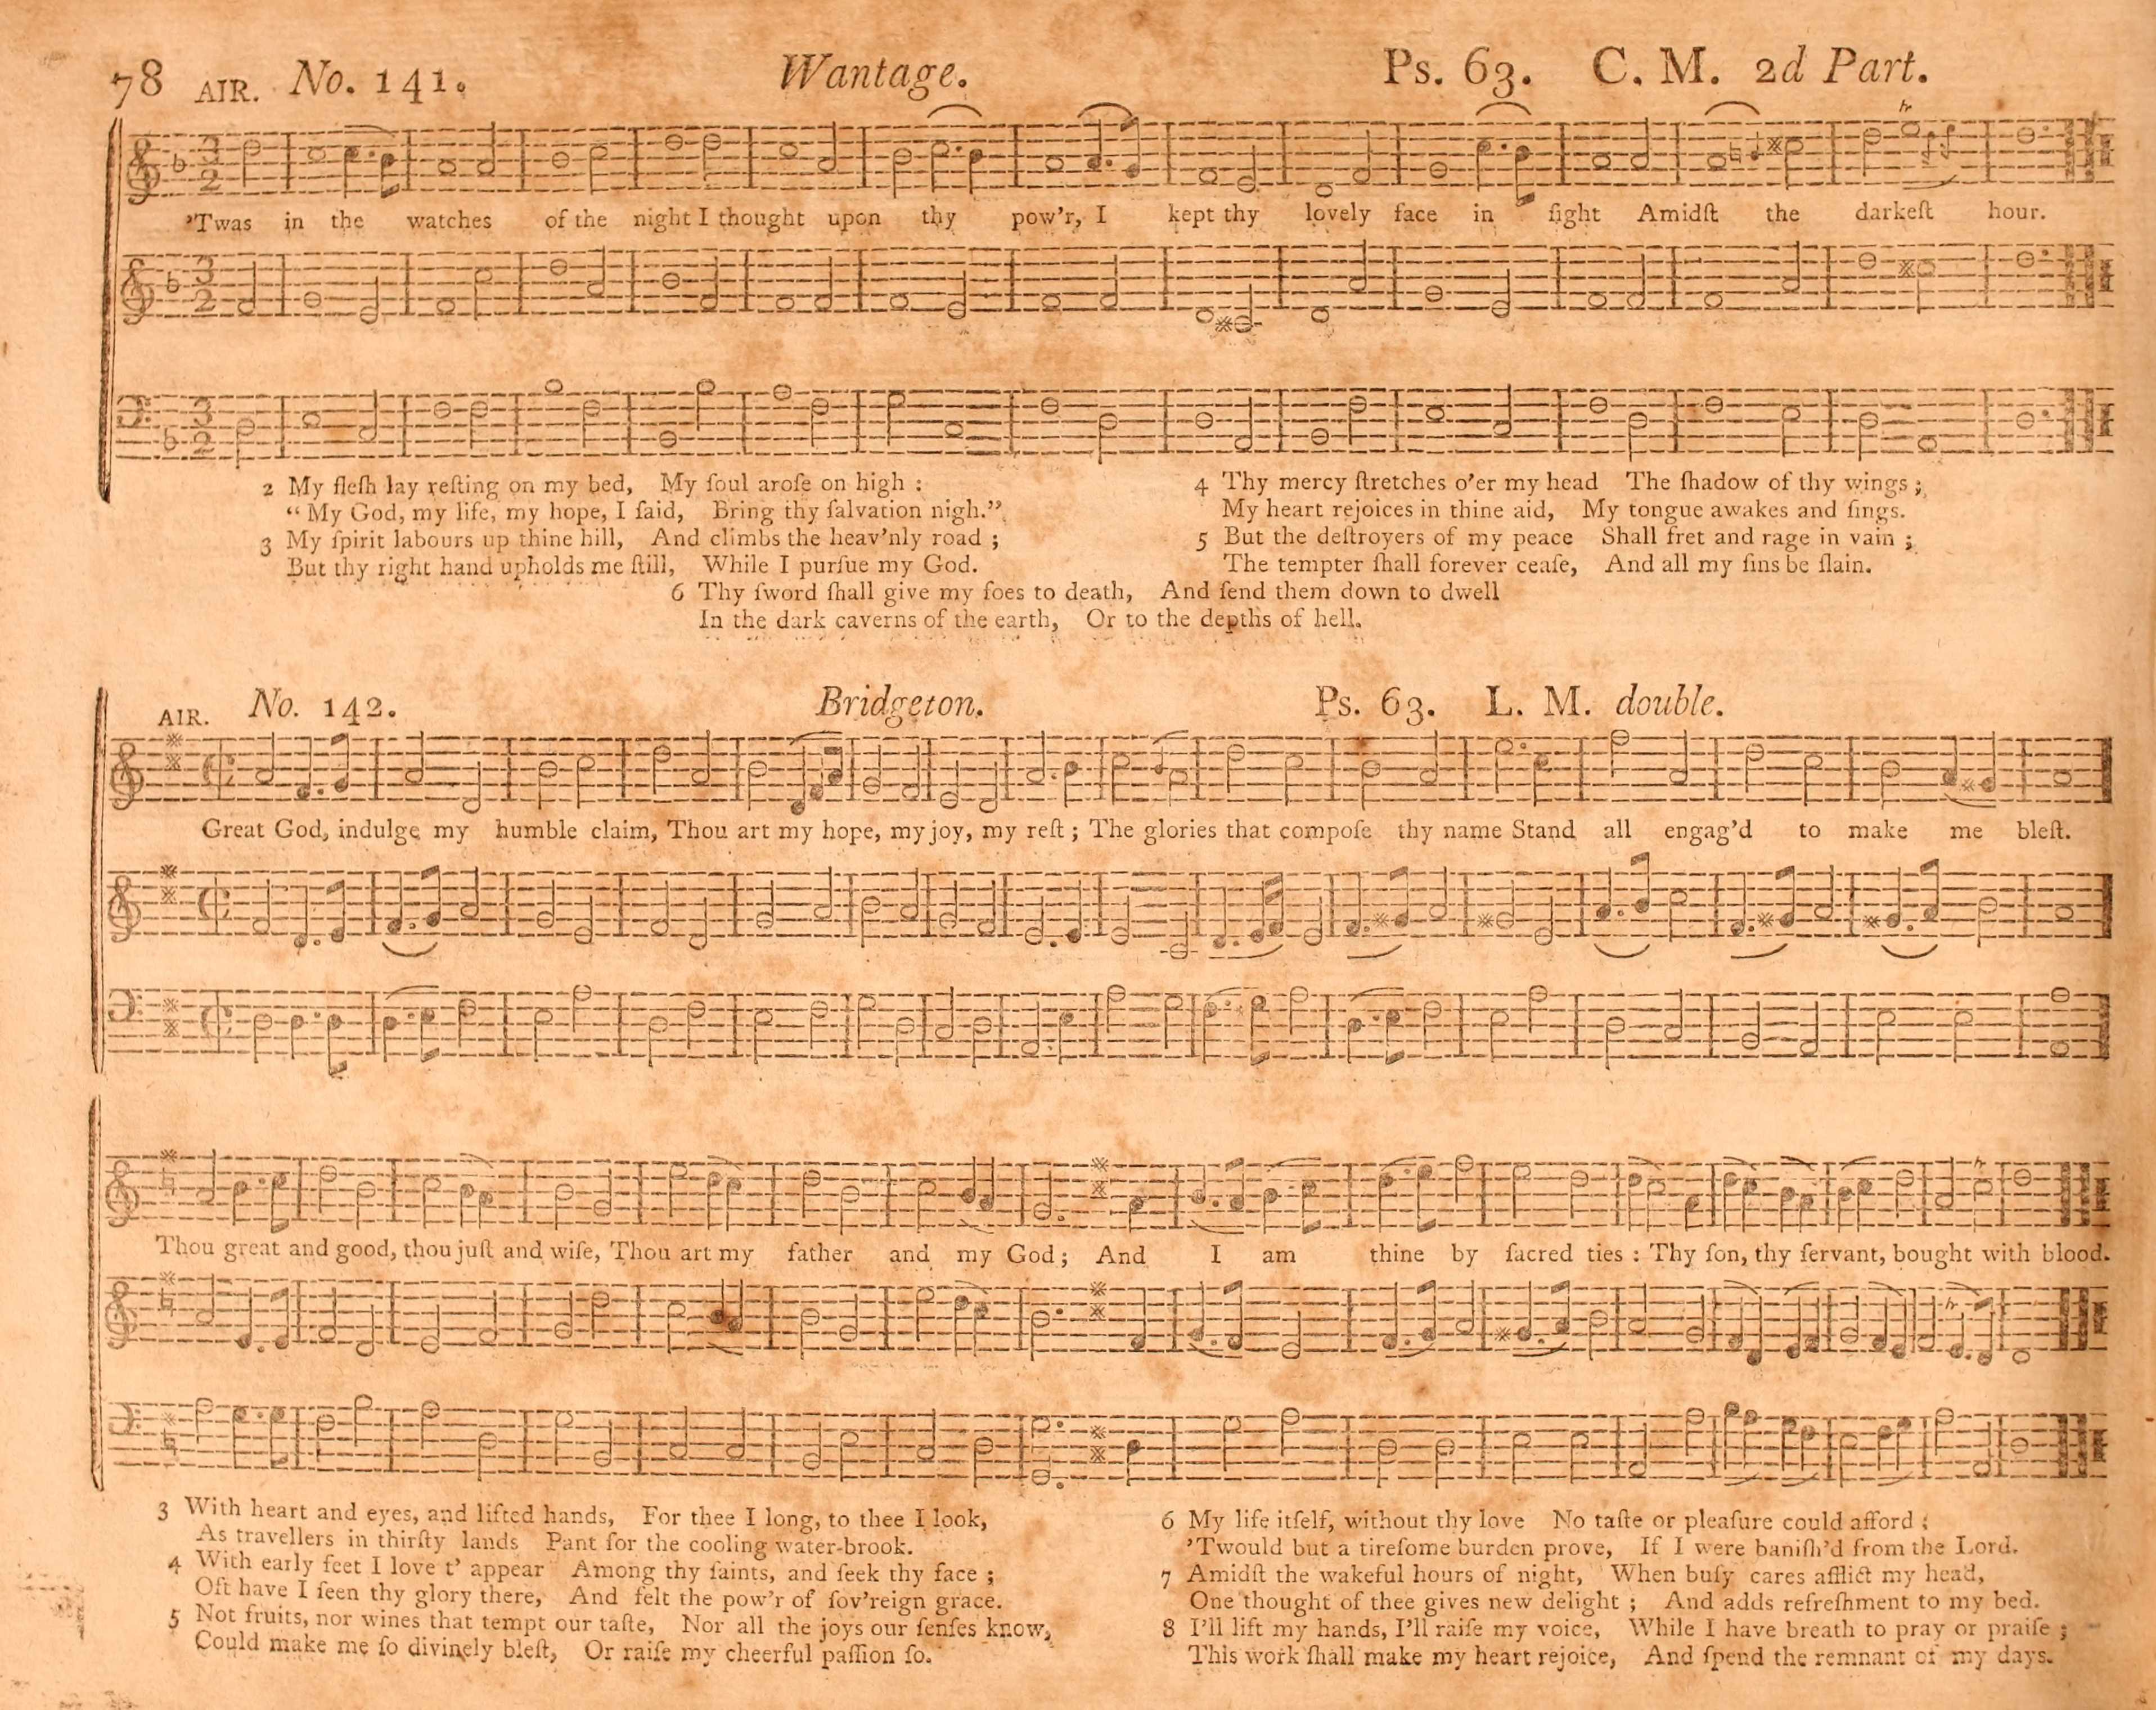 78 AIR. No. 141. Wantage. Ps. 63. C. M. 2d Part.
'Twas in the watches of the night I thought upon thy pow'r, I kept thy lovely face in ſight Amidſt the darkeſt hour.
2 My fleſh lay reſting on my bed, My ſoul aroſe on high :
“ My God, my life, my hope, I ſaid, Bring thy ſalvation nigh.”
3 My ſpirit labours up thine hill, And climbs the heav'nly road ;
But thy right hand upholds me ſtill, While I purſue my God.
4 Thy mercy ſtretches o'er my head The ſhadow of thy wings ;
My heart rejoices in thine aid, My tongue awakes and ſings.
5 But the deſtroyers of my peace Shall fret and rage in vain ;
The tempter ſhall forever ceaſe, And all my ſins be ſlain.
6 Thy ſword ſhall give my foes to death, And ſend them down to dwell
In the dark caverns of the earth, Or to the depths of hell.
AIR. No. 142. Bridgeton. Ps. 63. L. M. double.
Great God, indulge my humble claim, Thou art my hope, my joy, my reſt ; The glories that compoſe thy name Stand all engag'd to make me bleſt.
Thou great and good, thou juſt and wiſe, Thou art my father and my God ; And I am thine by ſacred ties : Thy ſon, thy ſervant, bought with blood.
3 With heart and eyes, and lifted hands, For thee I long, to thee I look,
As travellers in thirſty lands Pant for the cooling water-brook.
4 With early feet I love t' appear Among thy ſaints, and ſeek thy face ;
Oft have I ſeen thy glory there, And felt the pow'r of ſov'reign grace.
5 Not fruits, nor wines that tempt our taſte, Nor all the joys our ſenſes know,
Could make me ſo divinely bleſt, Or raiſe my cheerful paſſion ſo.
6 My life itſelf, without thy love No taſte or pleaſure could afford ;
'Twould but a tireſome burden prove, If I were baniſh'd from the Lord.
7 Amidſt the wakeful hours of night, When buſy cares afflict my head,
One thought of thee gives new delight ; And adds refreſhment to my bed.
8 I'll lift my hands, I'll raiſe my voice, While I have breath to pray or praiſe ;
This work ſhall make my heart rejoice, And ſpend the remnant of my days.